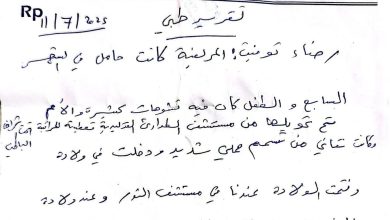 Rp
11/7/2025
تقرير طبي
رضاء تونيت: المريضة كانت حامل في الشهر
السابع و الطفل كان فيه تشوهات كثيرة والأم
تم تحويلها من مستشفى الطوارئ
وكانت تعاني من تسمم حملي شديد ودخلت في ولادة
وتمت الولادة عندنا في مستشفى النور وعند ولادة